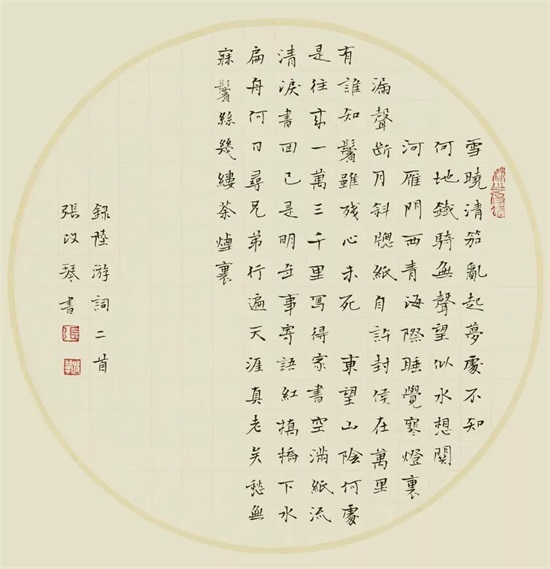 雪曉清笳亂起夢處不知
何地鐵騎無聲望似水想關
河雁門西青海際睡覺寒燈裏
漏聲斷月斜牕紙自許封侯在萬里
有誰知鬢雖殘心未死 東望山陰何處
是往來一萬三千里寫得家書空滿紙流
清淚書回已是明年事寄語紅橋橋下水
扁舟何日尋兄弟行遍天涯真老矣愁無
寐鬢絲幾縷茶煙裏
錄陸游詞二首
張改琴書